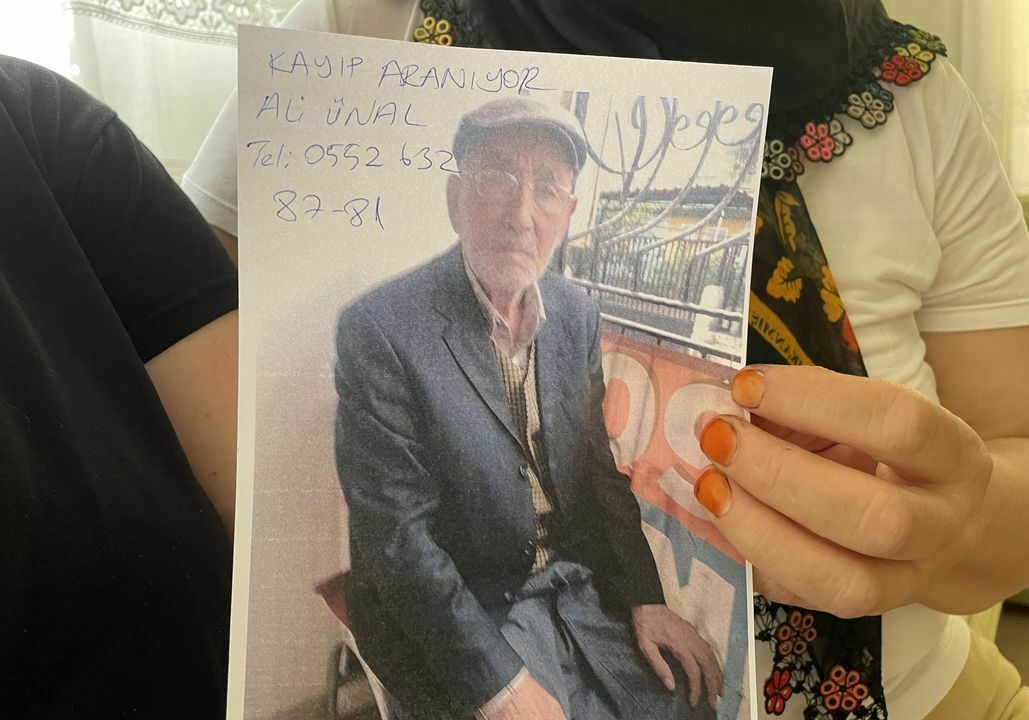 KAYIP ARANIYOR
ALİ ÜNAL
Tel; 0552 632
87-81